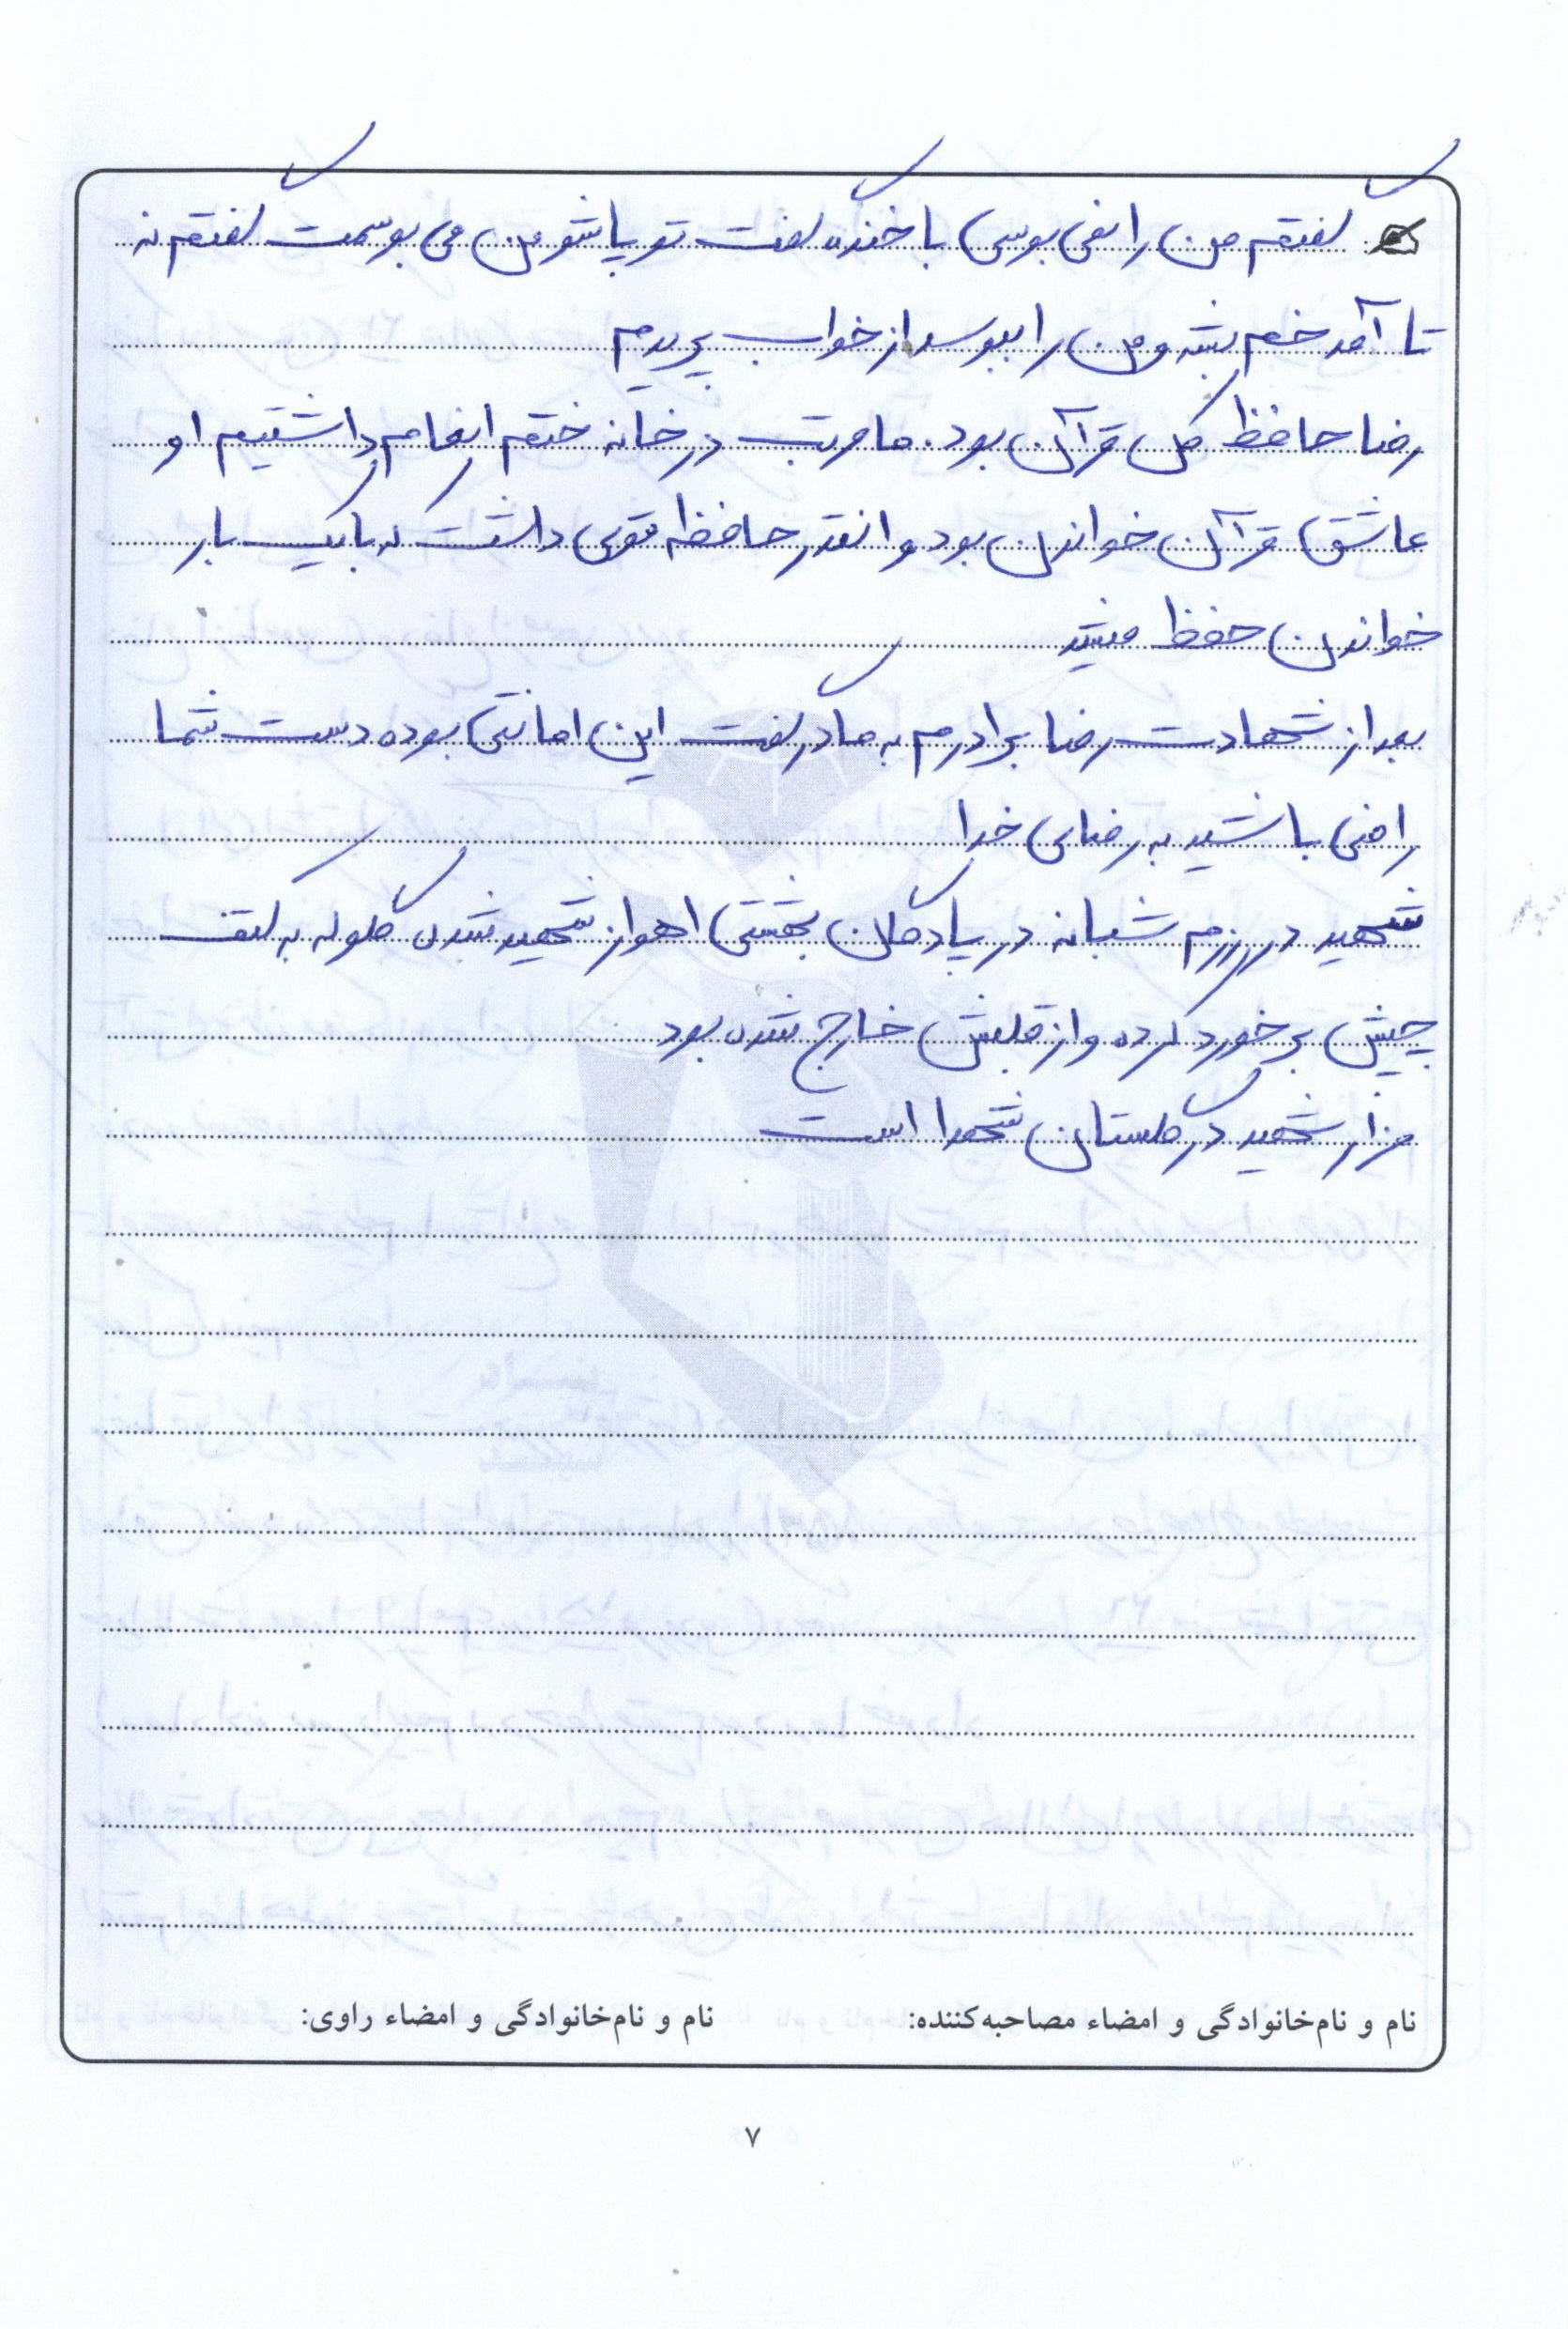 گفتم من را نمی بوسی با خنده گفت تو پاشو من می بوسمت گفتم نه
تا آمد خم بشه و من را ببوسد از خواب پریدم
رضا حافظ کل قرآن بود. ما مرتب در خانه ختم انعام داشتیم او
عاشق قرآن خواندن بود و انقدر حافظه قوی داشت که با یک بار
خواندن حفظ میشد
بعد از شهادت رضا برادرم به مادر گفت این امانتی بوده دست شما
راضی باشید به رضای خدا
شهید در رزم شبانه در پادگان بهشتی اهواز شهید شدن گلوله به کتف
چپش برخورد کرده و از قلبش خارج شده بود
مزار شهید در گلستان شهدا است
نام و نام‌خانوادگی و امضاء مصاحبه‌کننده: نام و نام‌خانوادگی و امضاء راوی:
۷